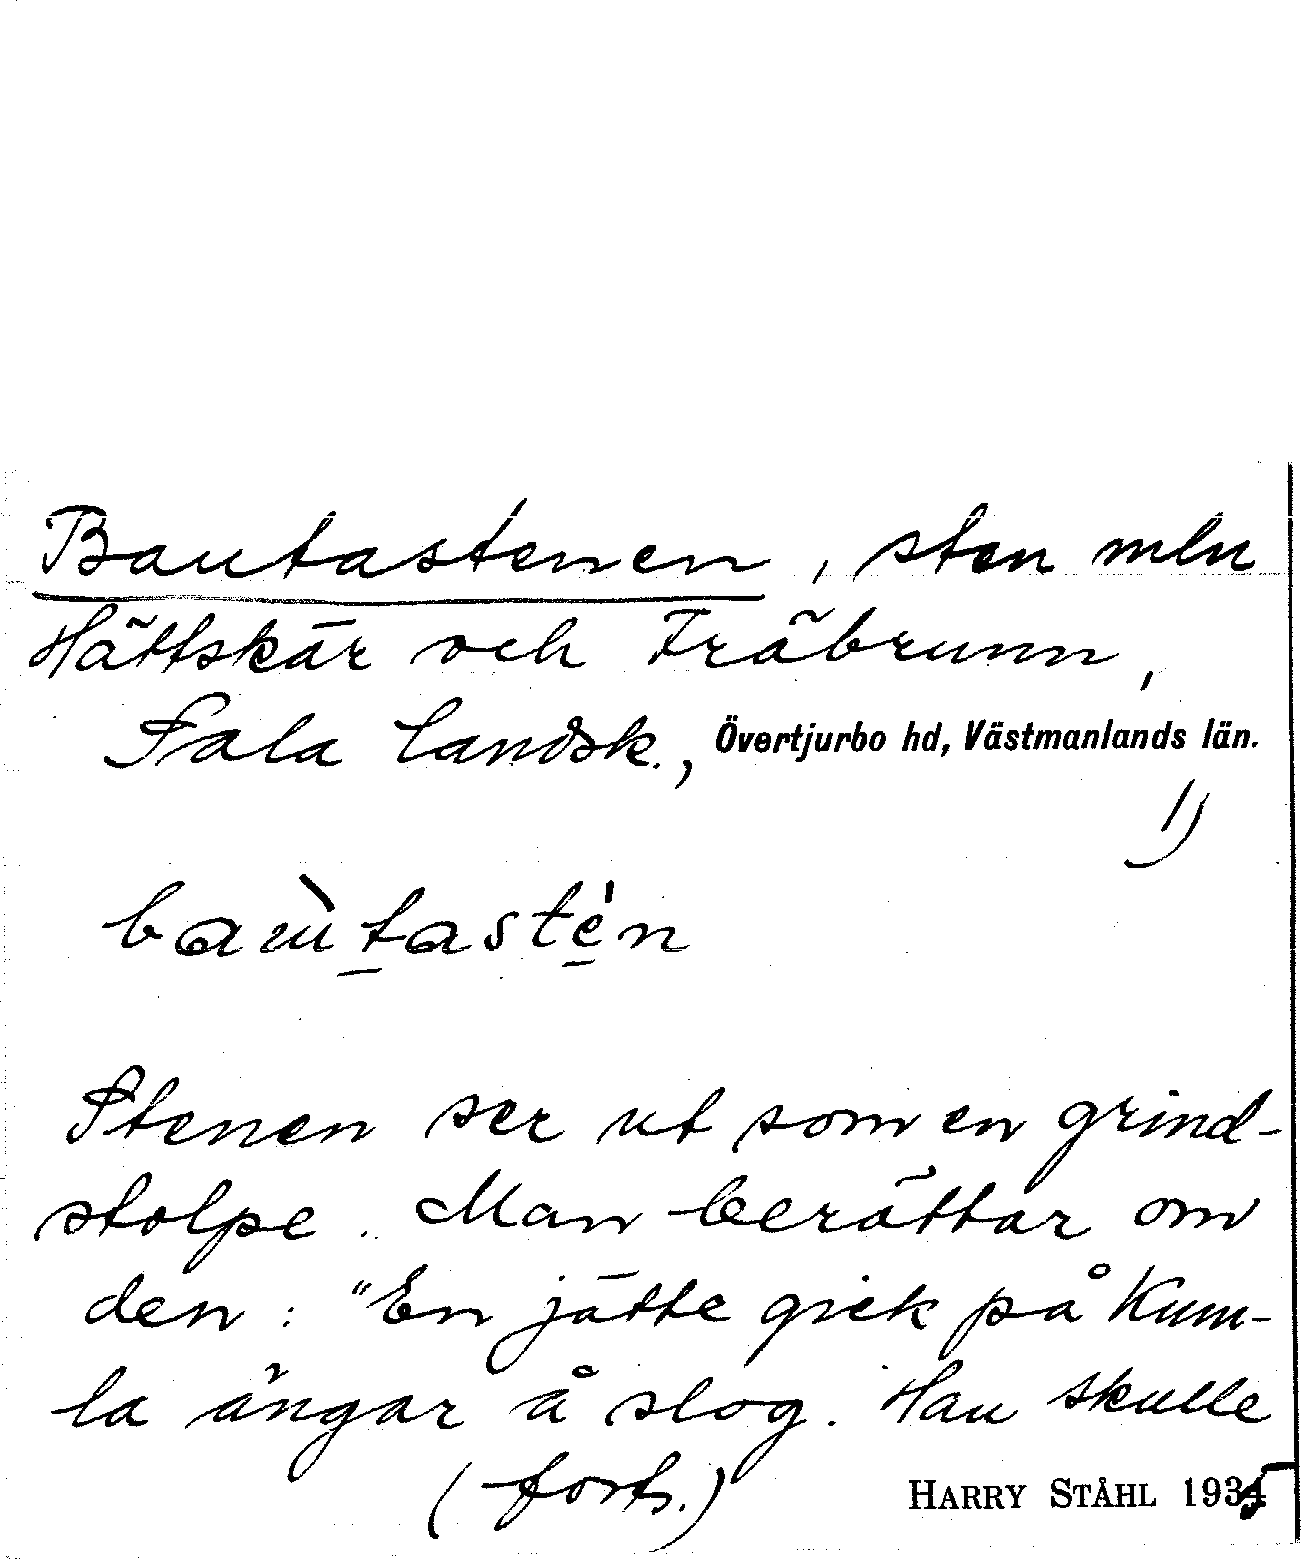 Bautastenen, sten mln
Hättskär och Träbrunn,
Sala landsk., Övertjurbo hd, Västmanlands län.
1)
Stenen ser ut som en grind-
stolpe. Man berättar om
den: "En jätte gick på Kum-
la ängar å slog. Han skulle
(forts.)
HARRY STÅHL 1935